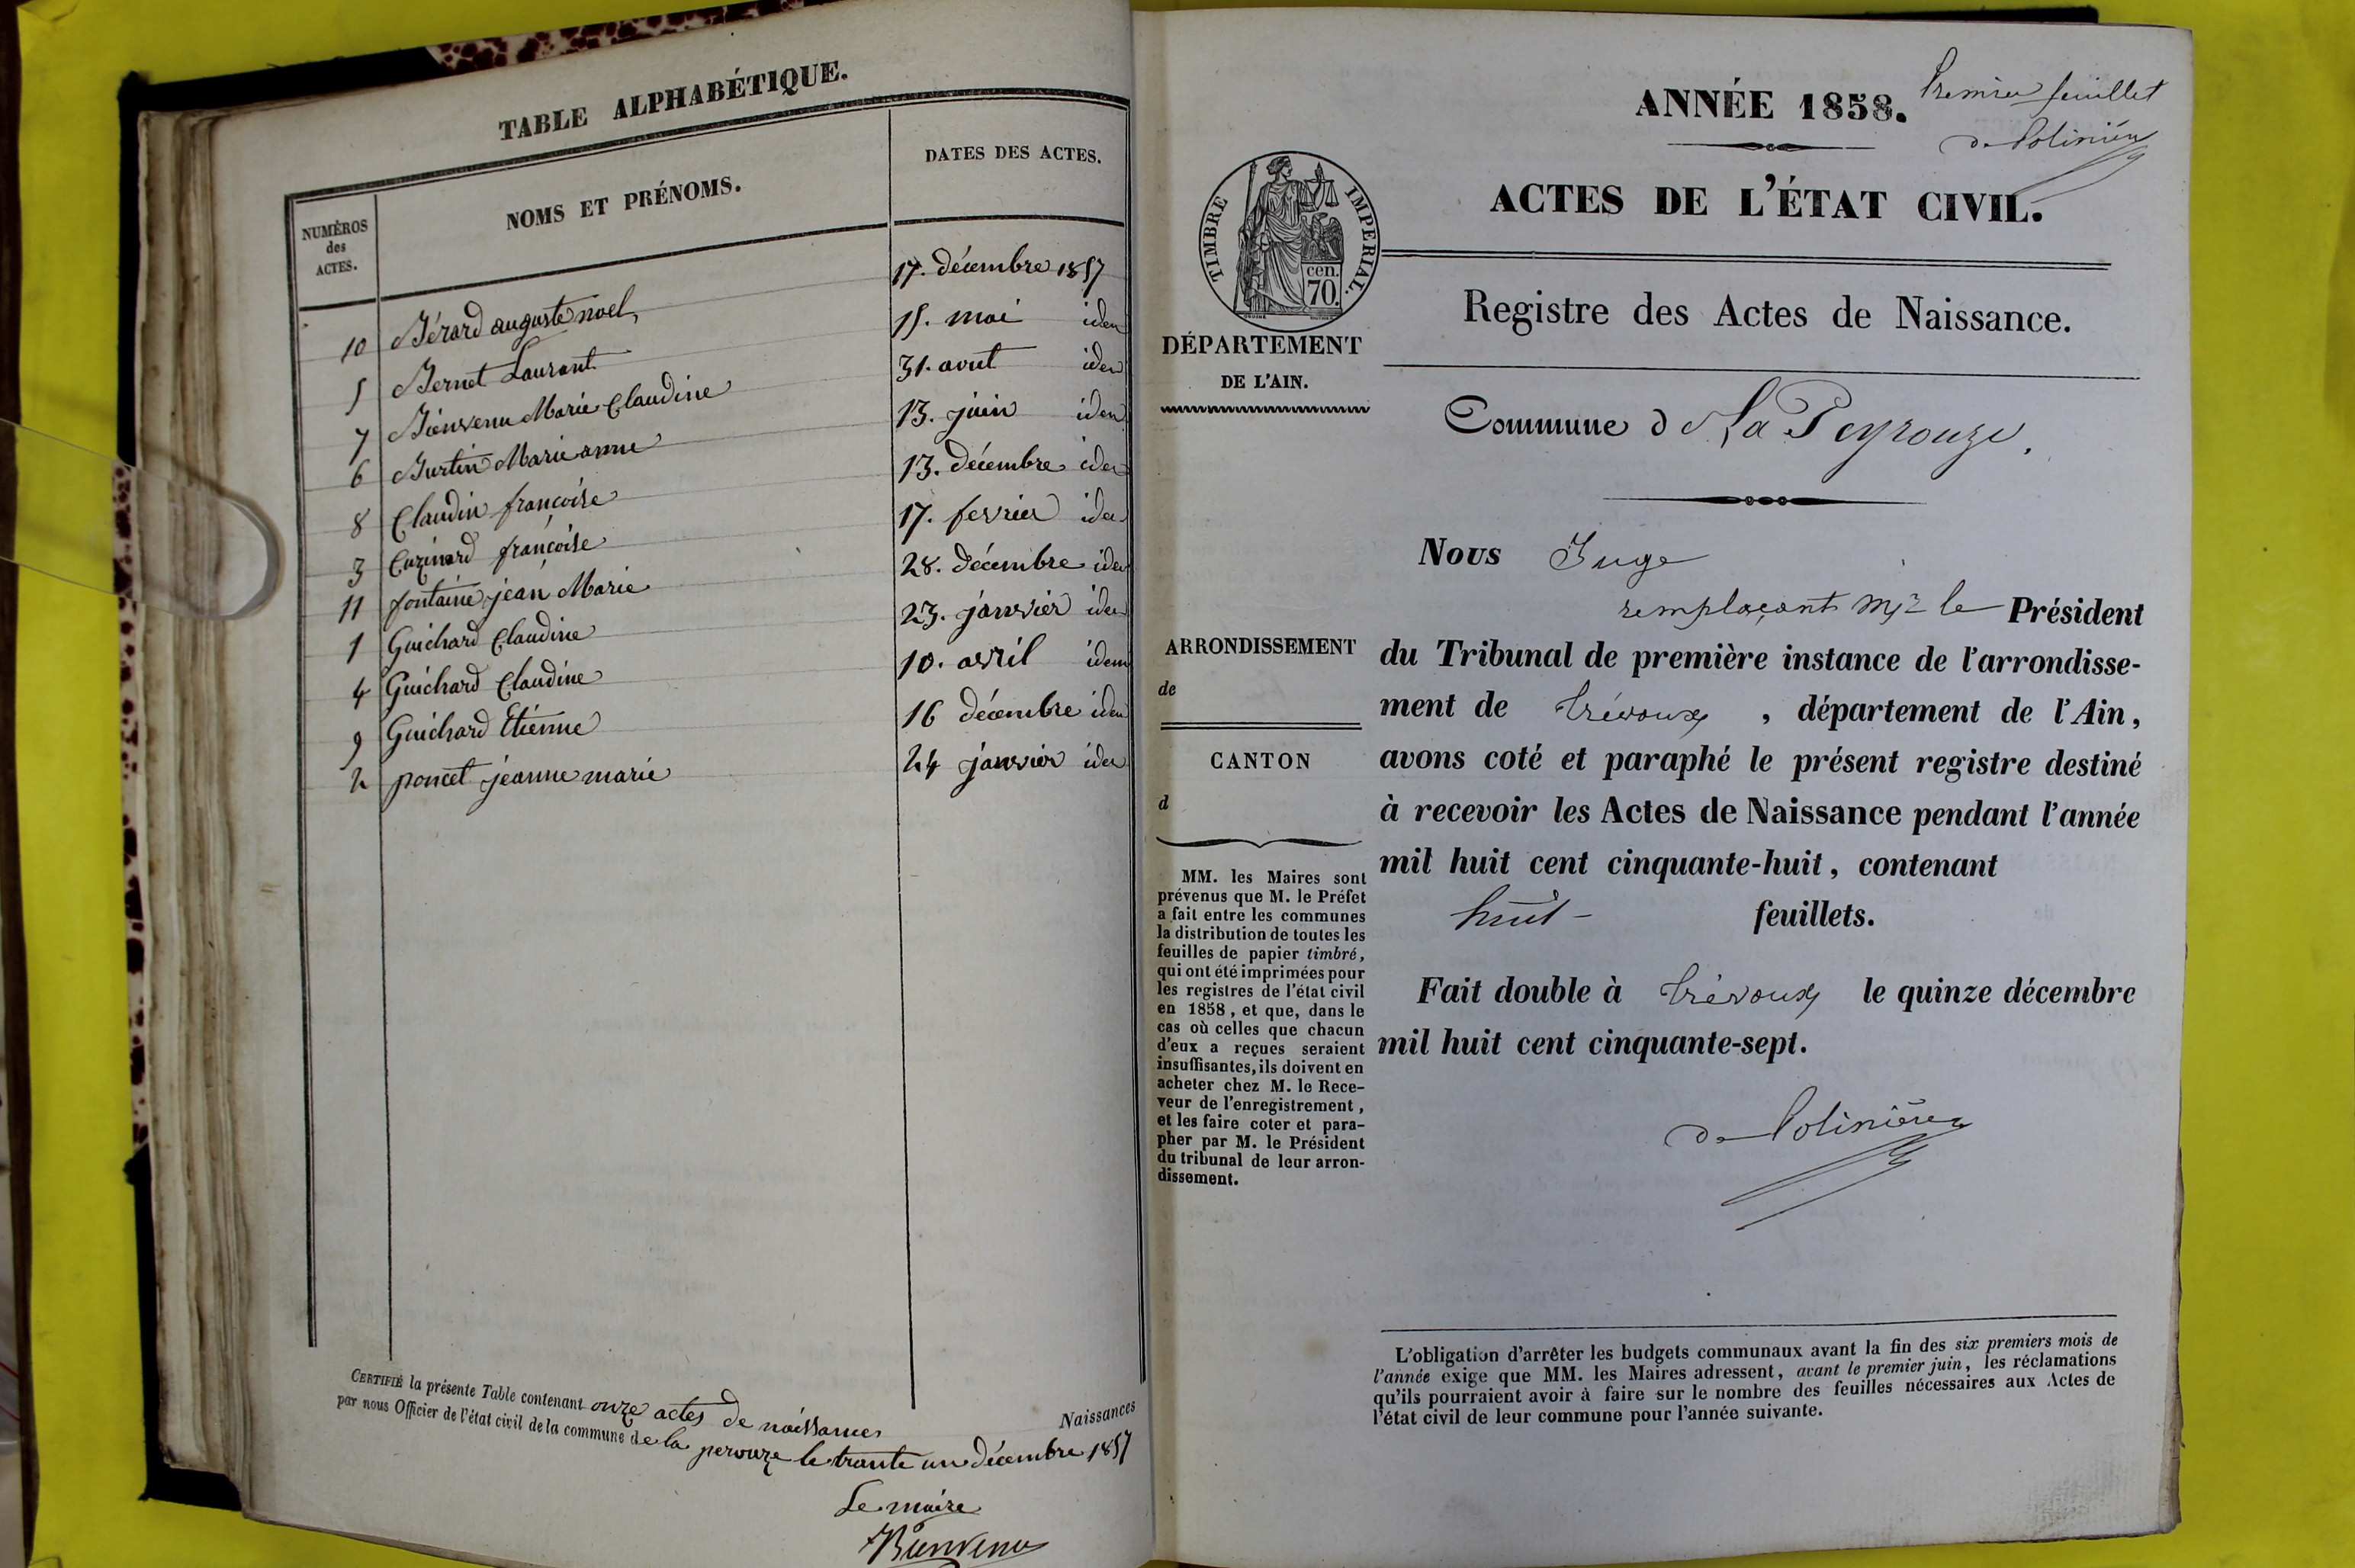 TABLE ALPHABÉTIQUE.
NUMÉROS
des
ACTES.
NOMS ET PRÉNOMS.
DATES DES ACTES.
10 Bérard auguste noel, 17. décembre 1857
5 Bernet Laurent 15. mai idem
7 Bienvenu Marie Claudine 31. aout idem
6 Burtin Marie anne 13. juin idem
8 Claudin françoise 13. décembre idem
3 Cuzinard françoise 17. fevrier idem
11 fontaine jean Marie 28. décembre idem
1 Guichard Claudine 23. janvier idem
4 Guichard Claudine 10. avril idem
9 Guichard Etienne 16 décembre idem
2 poncet jeanne marie 24 janvier idem
CERTIFIÉ la présente Table contenant onze actes de naissances
Naissances
par nous Officier de l'état civil de la commune de la perouze le trante un décembre 1857
Le maire
Bienvenu
ANNÉE 1858.
Premier feuillet
de Polinière
ACTES DE L'ÉTAT CIVIL.
TIMBRE IMPERIAL.
cen.
70.
Registre des Actes de Naissance.
DÉPARTEMENT
DE L'AIN.
Commune d La Peyrouze.
Nous Juge
remplaçant Mr le Président
du Tribunal de première instance de l'arrondisse-
ment de Trévoux, département de l'Ain,
avons coté et paraphé le présent registre destiné
à recevoir les Actes de Naissance pendant l'année
mil huit cent cinquante-huit, contenant
huit - feuillets.
Fait double à Trévoux le quinze décembre
mil huit cent cinquante-sept.
de Polinière
ARRONDISSEMENT
de
CANTON
d
MM. les Maires sont
prévenus que M. le Préfet
a fait entre les communes
la distribution de toutes les
feuilles de papier timbré,
qui ont été imprimées pour
les registres de l'état civil
en 1858, et que, dans le
cas où celles que chacun
d'eux a reçues seraient
insuffisantes, ils doivent en
acheter chez M. le Rece-
veur de l'enregistrement,
et les faire coter et para-
pher par M. le Président
du tribunal de leur arron-
dissement.
L'obligation d'arrêter les budgets communaux avant la fin des six premiers mois de
l'année exige que MM. les Maires adressent, avant le premier juin, les réclamations
qu'ils pourraient avoir à faire sur le nombre des feuilles nécessaires aux Actes de
l'état civil de leur commune pour l'année suivante.